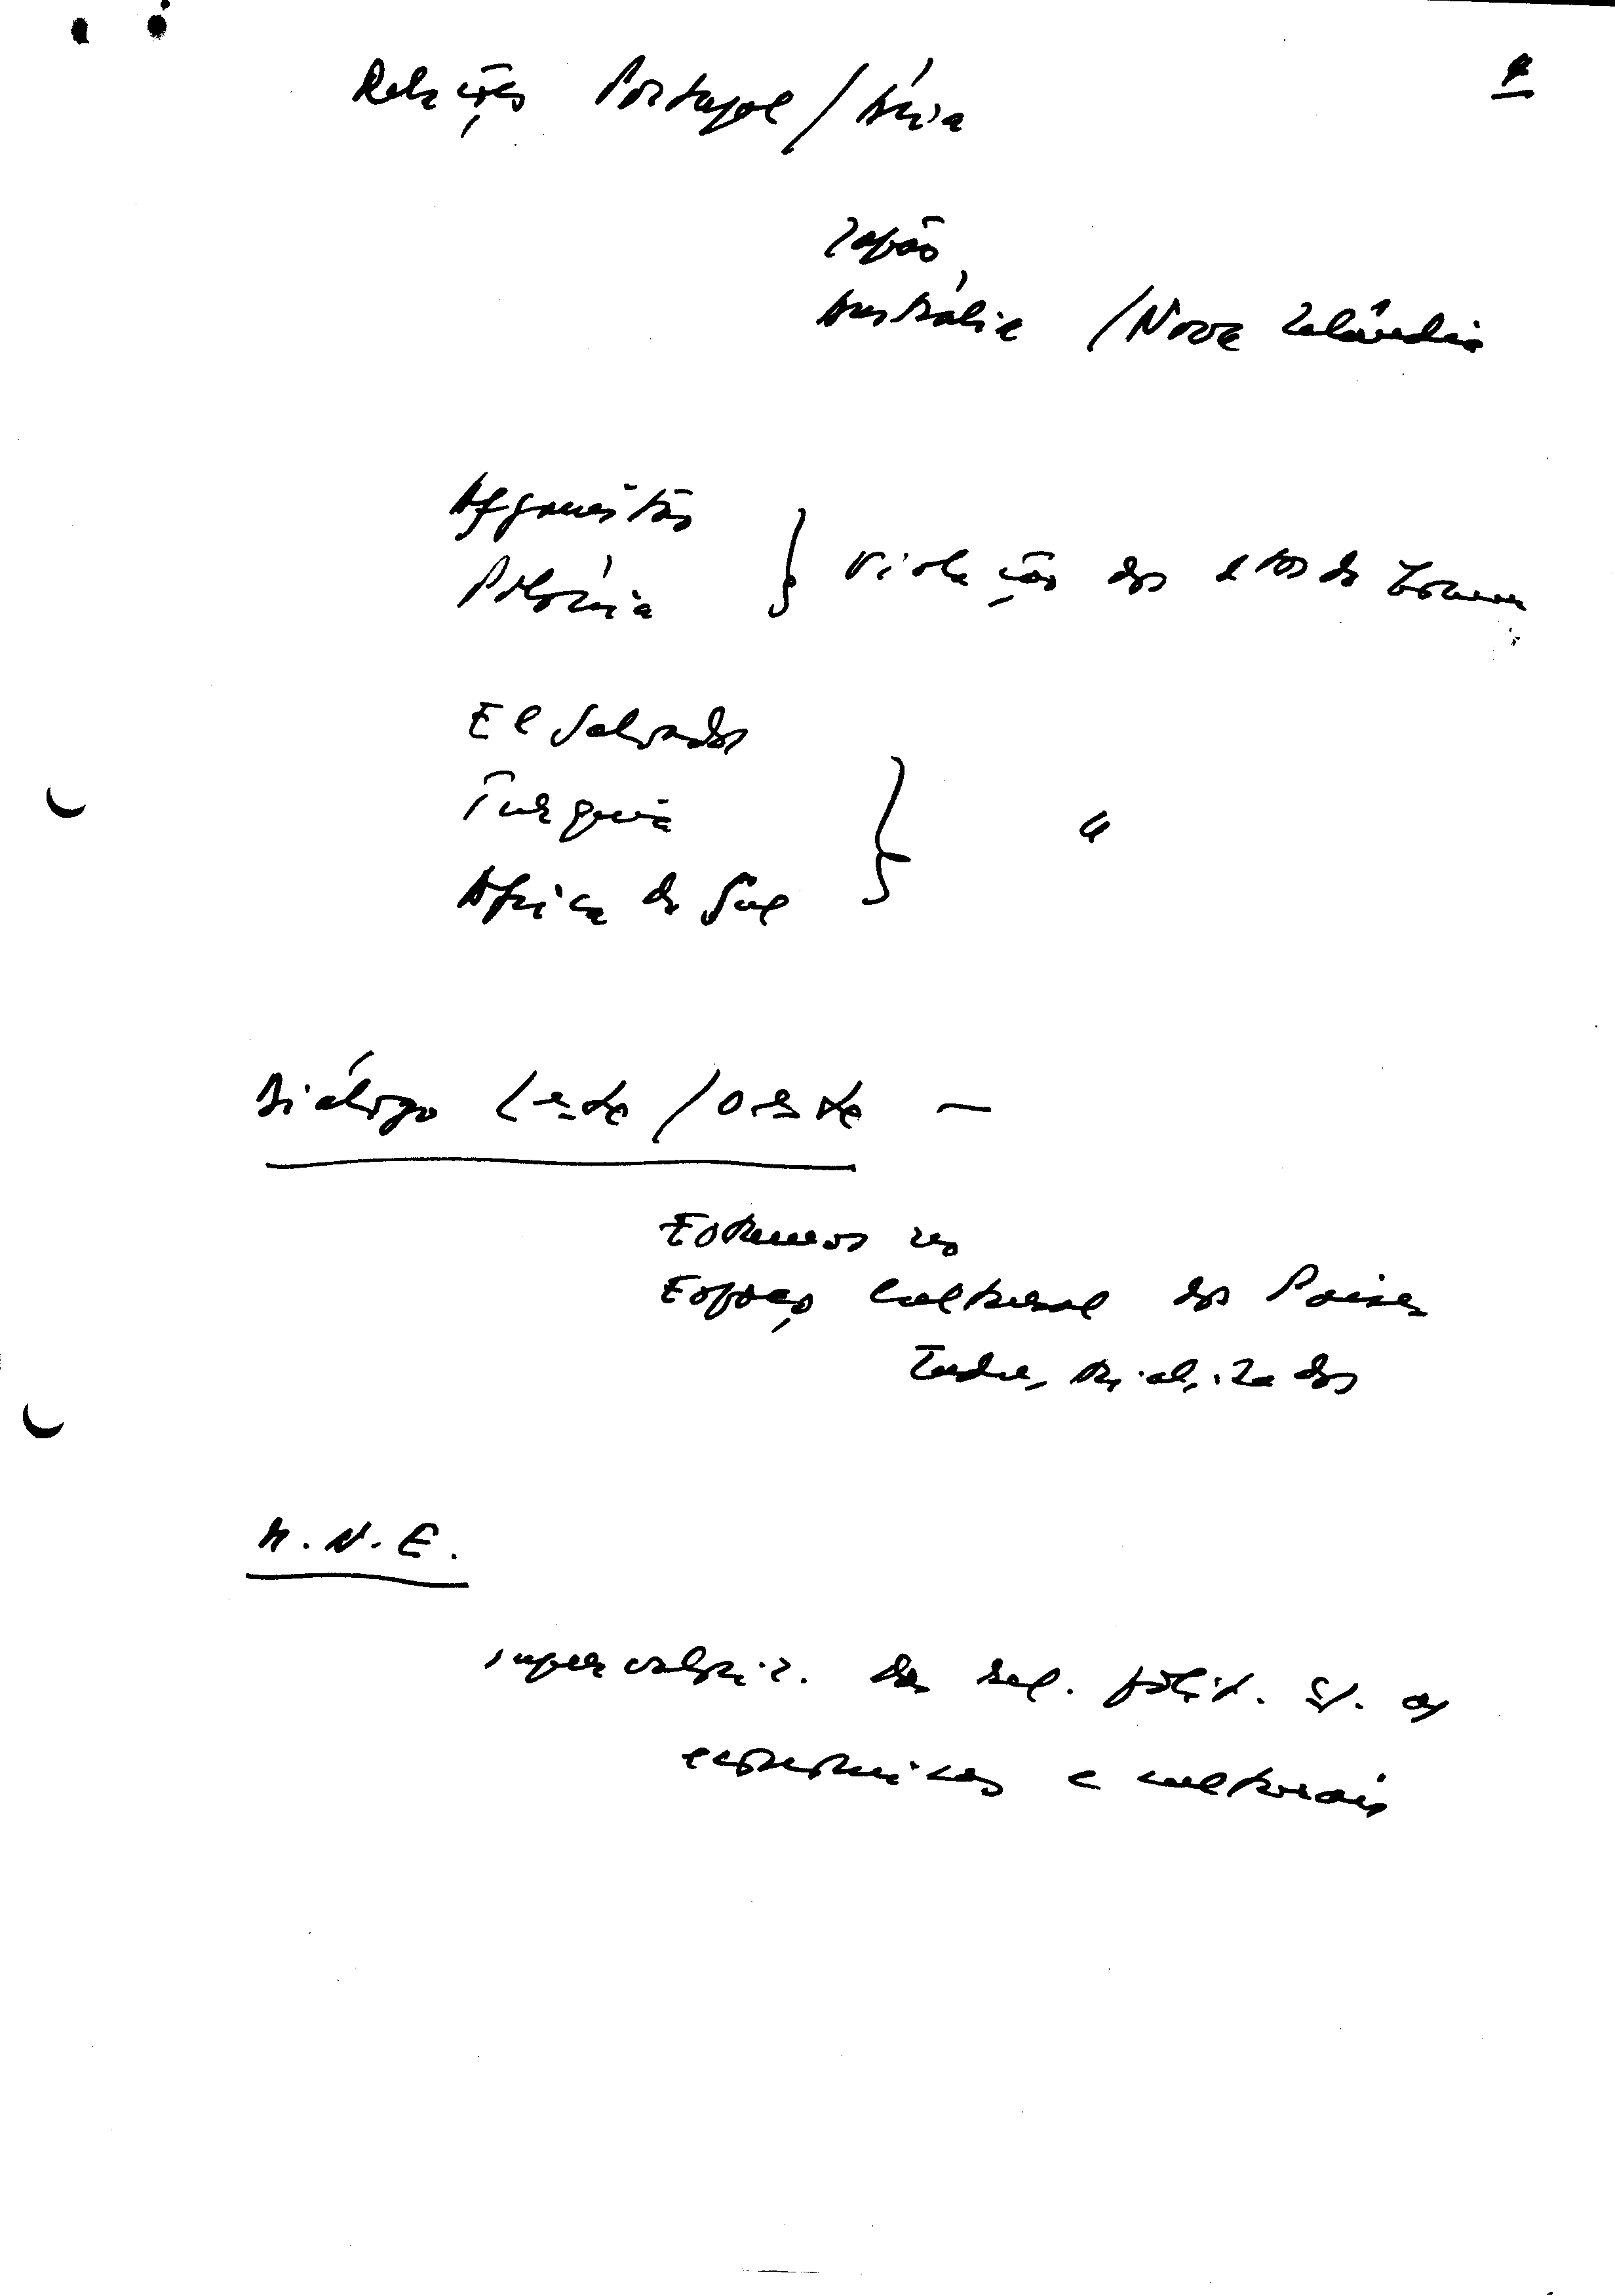 Relações Portugal / Ásia
Japão
Austrália / Nova Zelândia
Afganistão
Polónia } Violação dos
El Salvador
Turquia } "
África do Sul
Diálogo Leste / Oeste —
Estamos no
Espaço Cultural dos Países
Industrializados
M.N.E.
supervaloriz. das rel. polít. s/. as
económicas e culturais